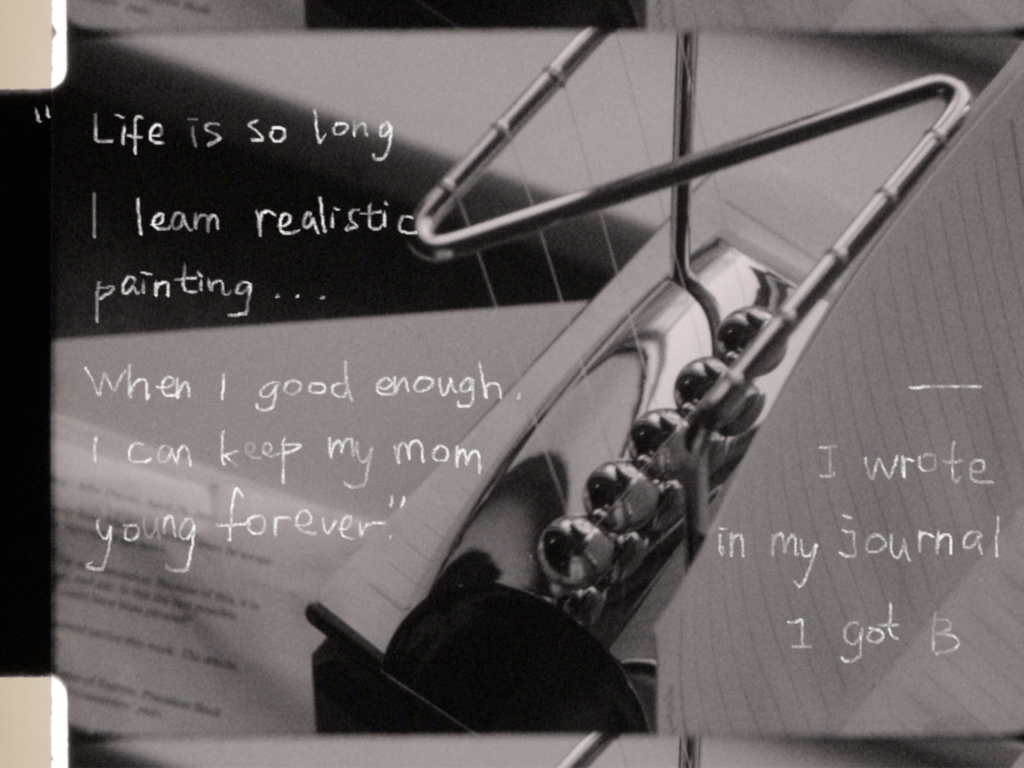 "Life is so long
I learn realistic
painting...
When I good enough,
I can keep my mom
young forever."
—
I wrote
in my journal
I got B